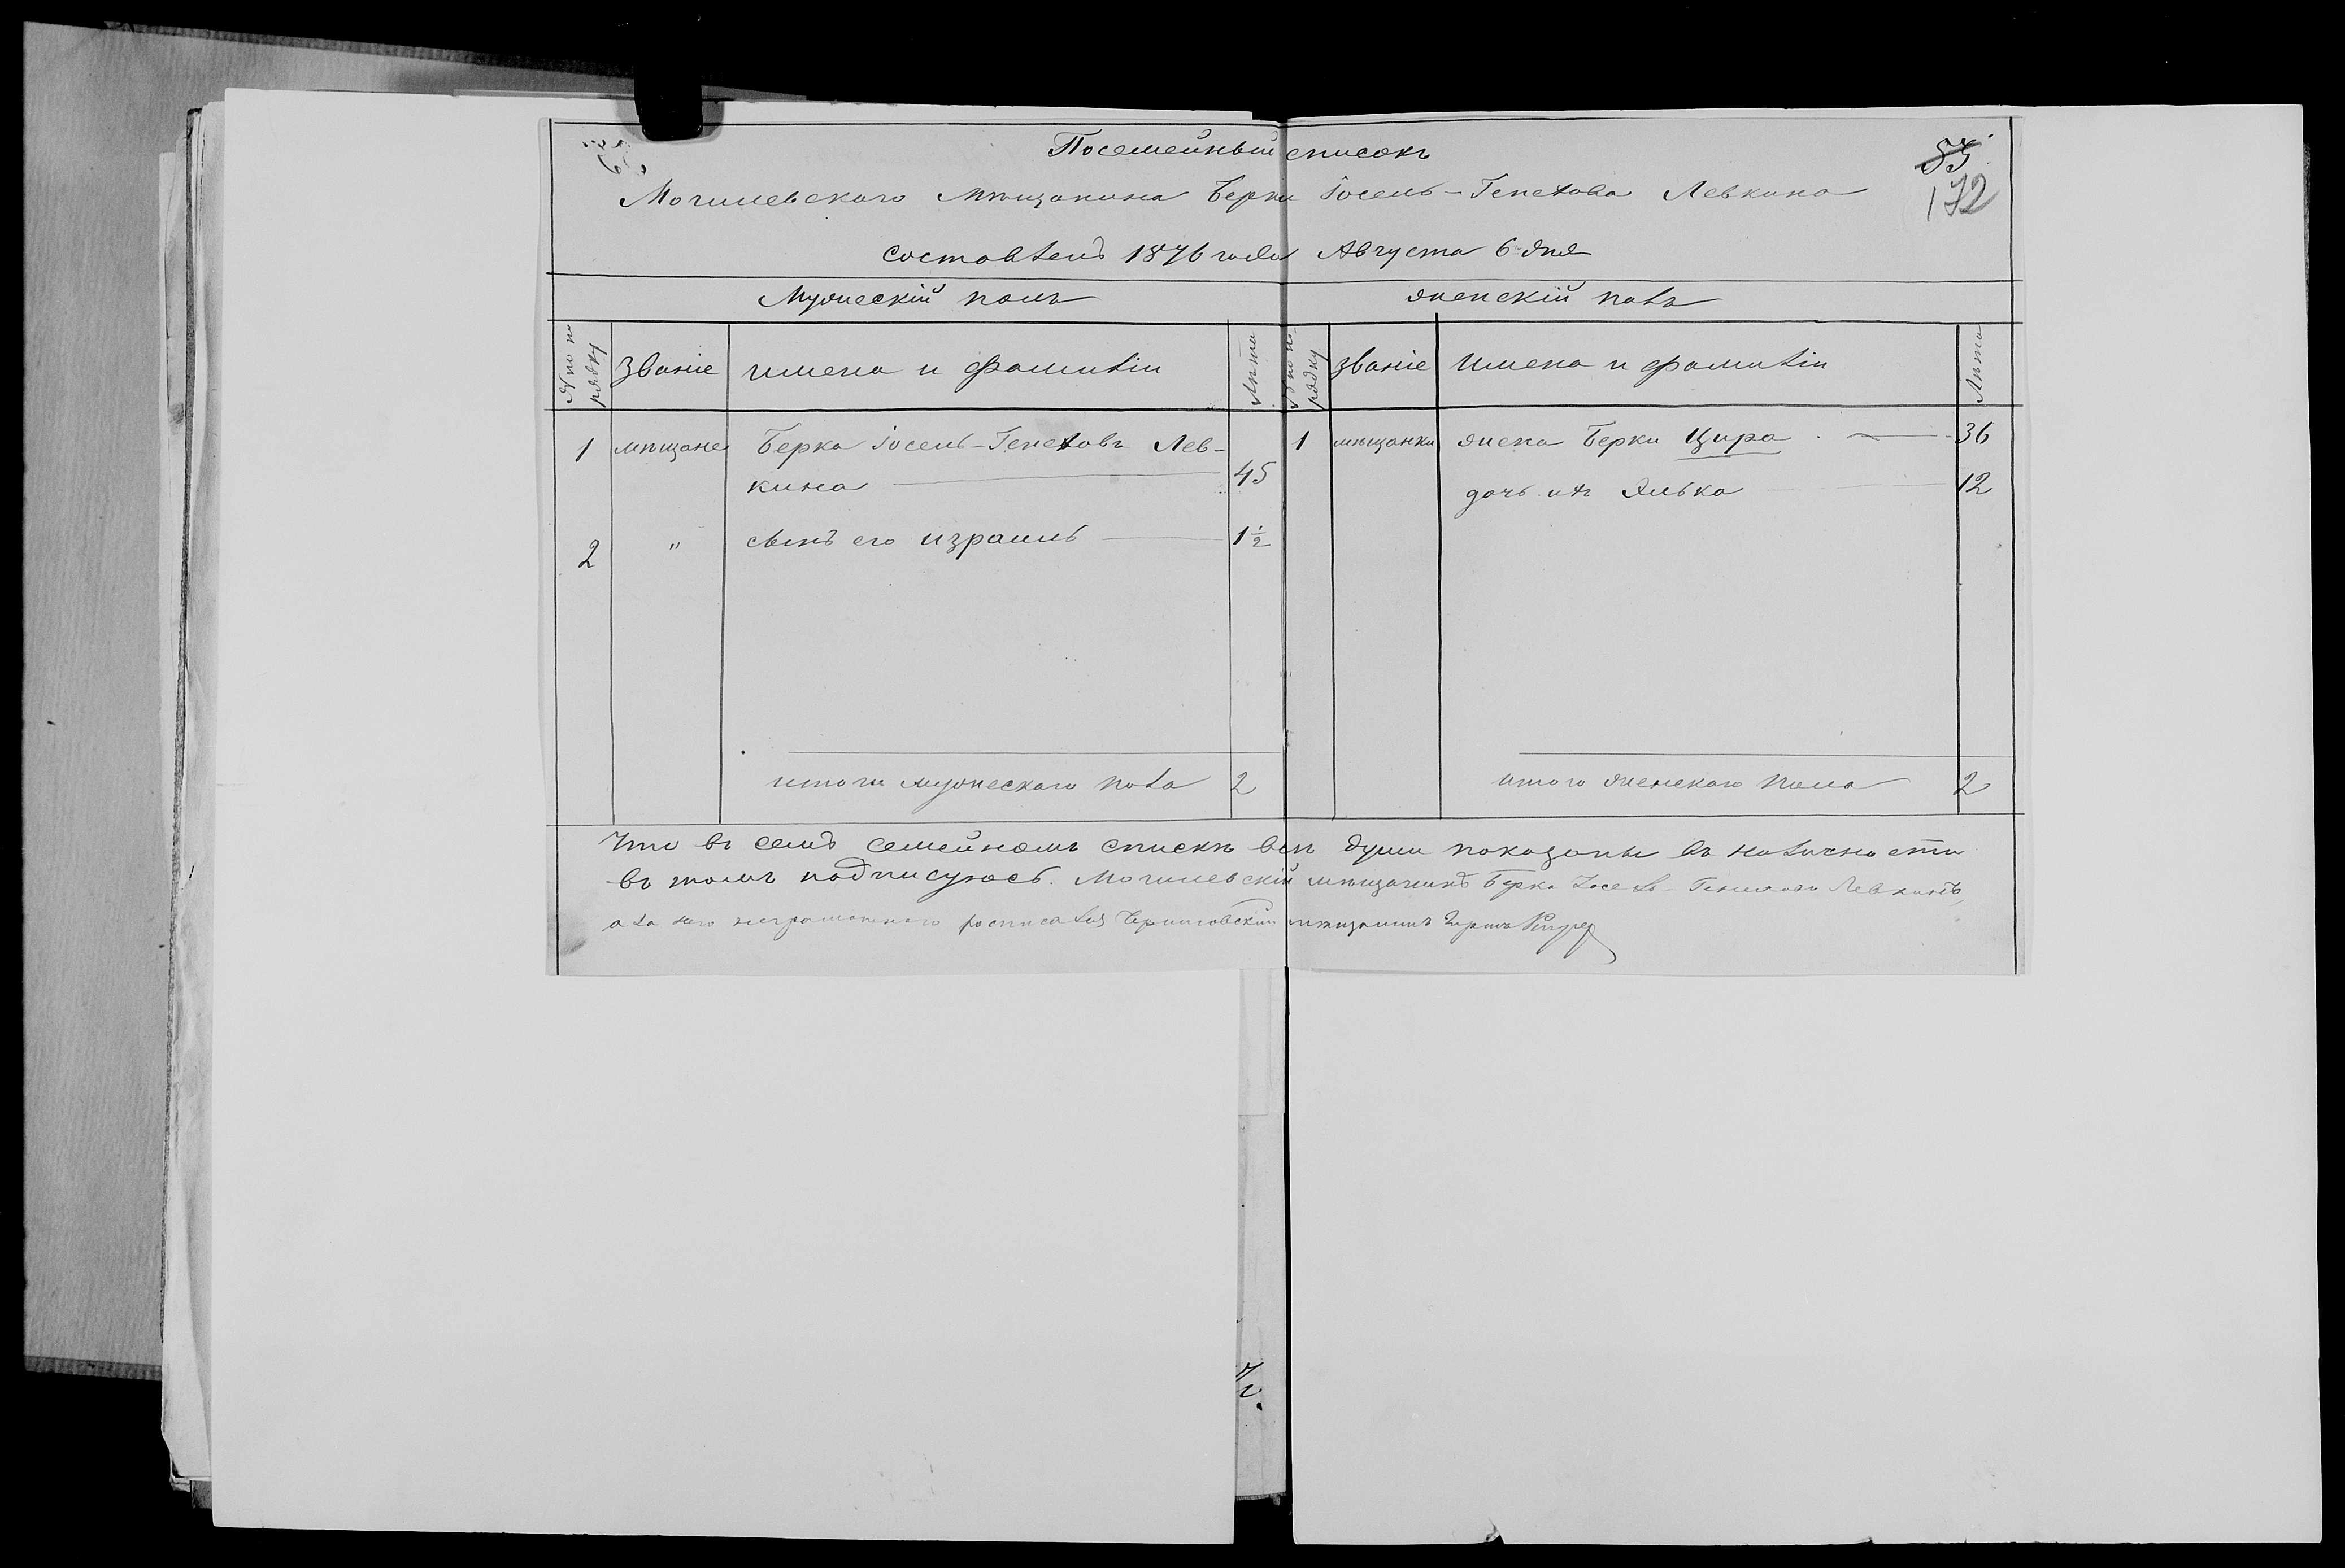 Посемейный списокъ
85
172
Могилевскаго мѣщанина Берки Іосель-Генехова Левкина
составленъ 1876 года Августа 6 дня
Мужескій полъ
женскій полъ
№ по по
рядку
Званіе
имена и фамиліи
Лѣта
№ по по-
рядку
званіе
имена и фамиліи
Лѣта
1 мѣщане Берка Іосель-Генеховъ Лев-
кина 45
2 " сынъ его израиль 1½
1 мѣщанки жена Берки Цира 36
дочь ихъ Элька 12
итого мужескаго пола 2
итого женскаго пола 2
Что въ семъ семейномъ спискѣ всѣ души показаны въ наличности
въ томъ подписуюсь. Могилевскій мѣщанинъ Берка Іосель-Генеховъ Левкинъ,
а за него неграмотнаго росписался Черниговскій мѣщанинъ